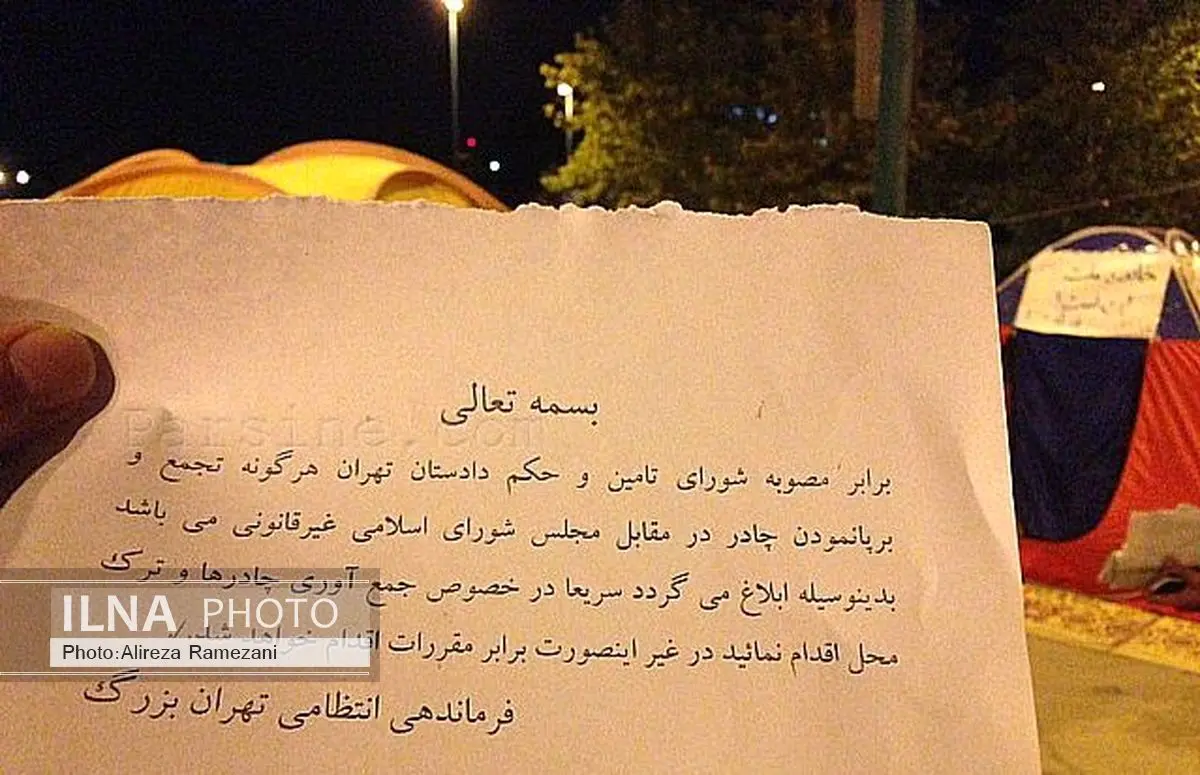 بسمه تعالی
برابر مصوبه شورای تامین و حکم دادستان تهران هرگونه تجمع و
برپانمودن چادر در مقابل مجلس شورای اسلامی غیرقانونی می باشد
بدینوسیله ابلاغ می گردد سریعا در خصوص جمع آوری چادرها و ترک
محل اقدام نمائید در غیر اینصورت برابر مقررات اقدام خواهد شد./
فرماندهی انتظامی تهران بزرگ
Parsine.com
ILNA PHOTO
Photo:Alireza Ramezani